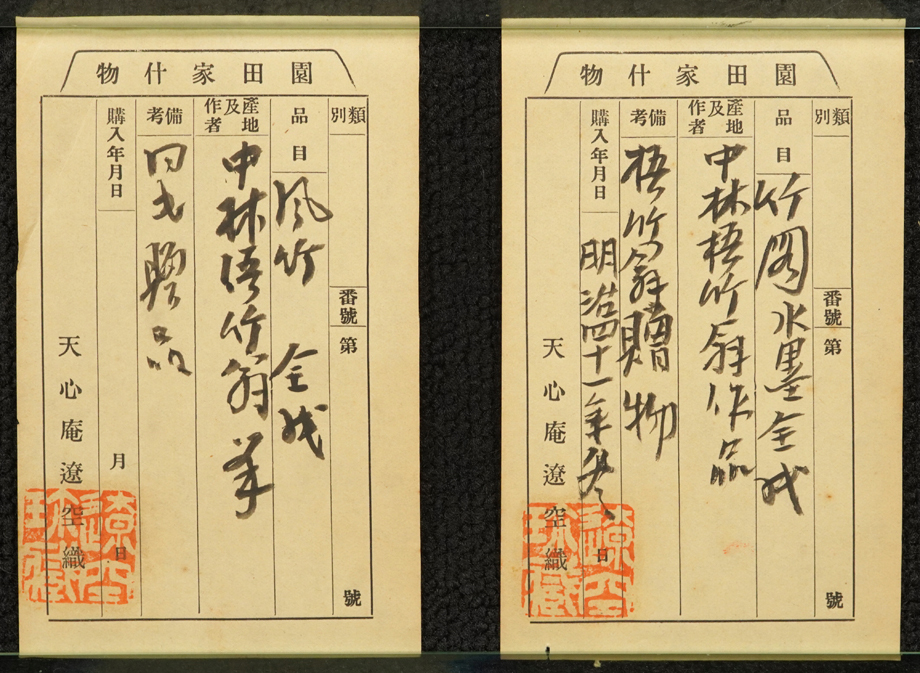 園田家什物
類別
番號 第 號
品目 竹 水墨全
產地及作者 中林梧竹翁作品
備考 梧竹翁贈物
購入年月日 明治四十一年冬 日
天心庵遼空識
遼空珍藏
園田家什物
類別
番號 第 號
品目 風竹 全
產地及作者 中林梧竹翁筆
備考 同 品
購入年月日 月 日
天心庵遼空識
遼空珍藏